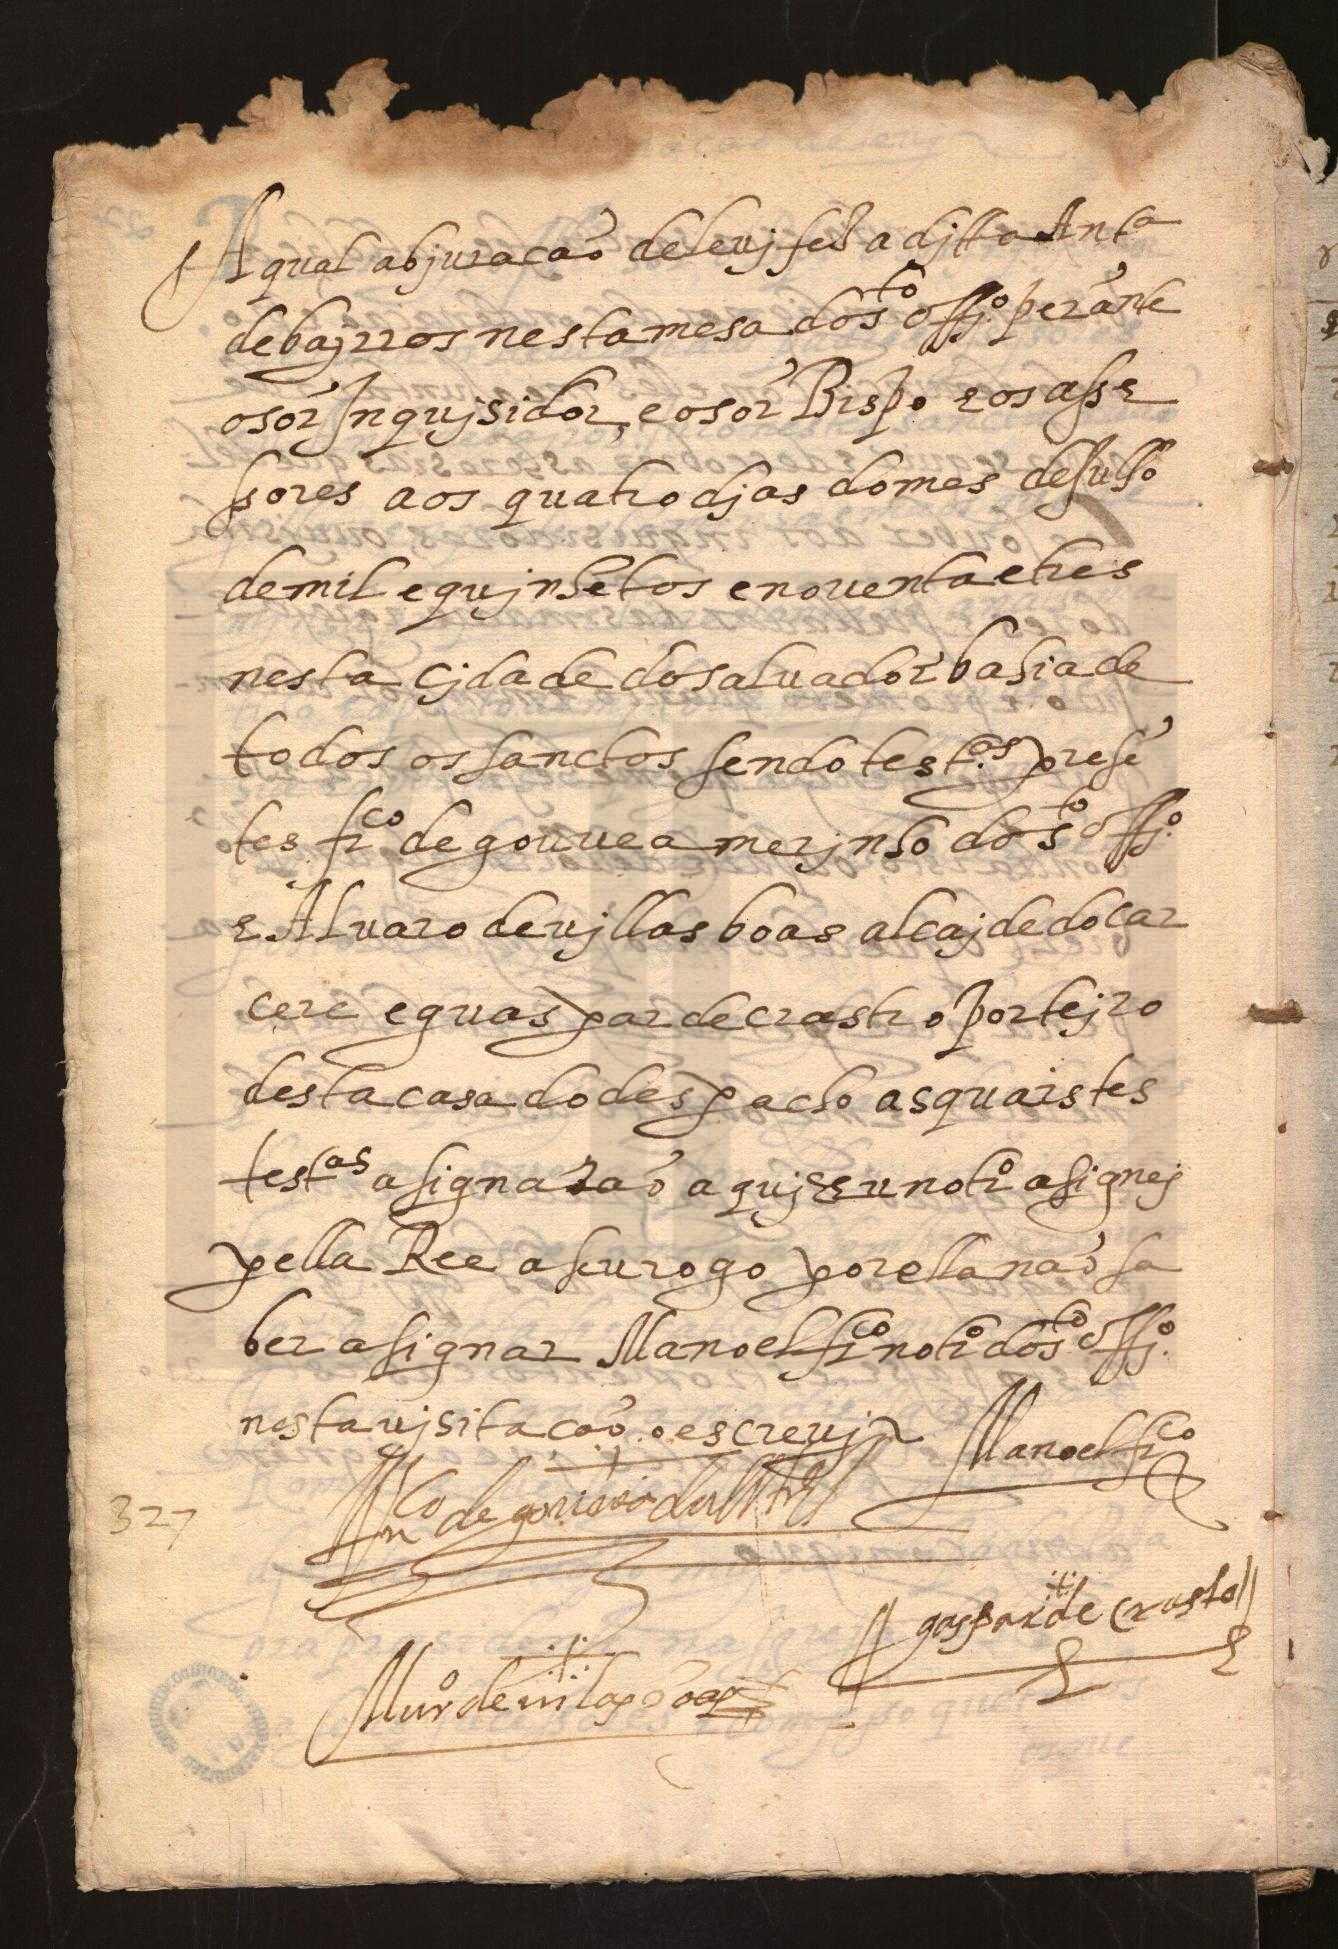 A qual abjuracaõ de leuj fes a djtta Ant.ᵃ
de bajrros nesta mesa do s.ᵗᵒ offj.º perãte
o s.ᵒʳ Inqujsidor, e o s.ᵒʳ Bispo e os asse
ssores aos quatro djas do mes de Julho
de mil e qujnhẽtos e nouenta e tres
nesta cjdade do saluador bahia de
todos os sanctos sendo test.ᵃˢ presẽ
tes fr.ᶜᵒ de gouuea merjnho do s.ᵗᵒ offj.º
e Aluaro de ujllas boas alcajde do car
cere e guaspar de crastro portejro
desta casa do despacho as quais tes
test.ᵃˢ asignaraõ aquj e eu not.ʳº asignej
pella Ree a seu rogo por ella naõ sa
ber asignar Manoel fr.ᶜᵒ not.ʳº do s.ᵗᵒ offj.º
nesta ujsitacaõ o escreuj
Manoel fr.ᶜᵒ
fr.ᶜᵒ de gouuea
327
gaspar de crasto
Alu.ʳº de uilas boas